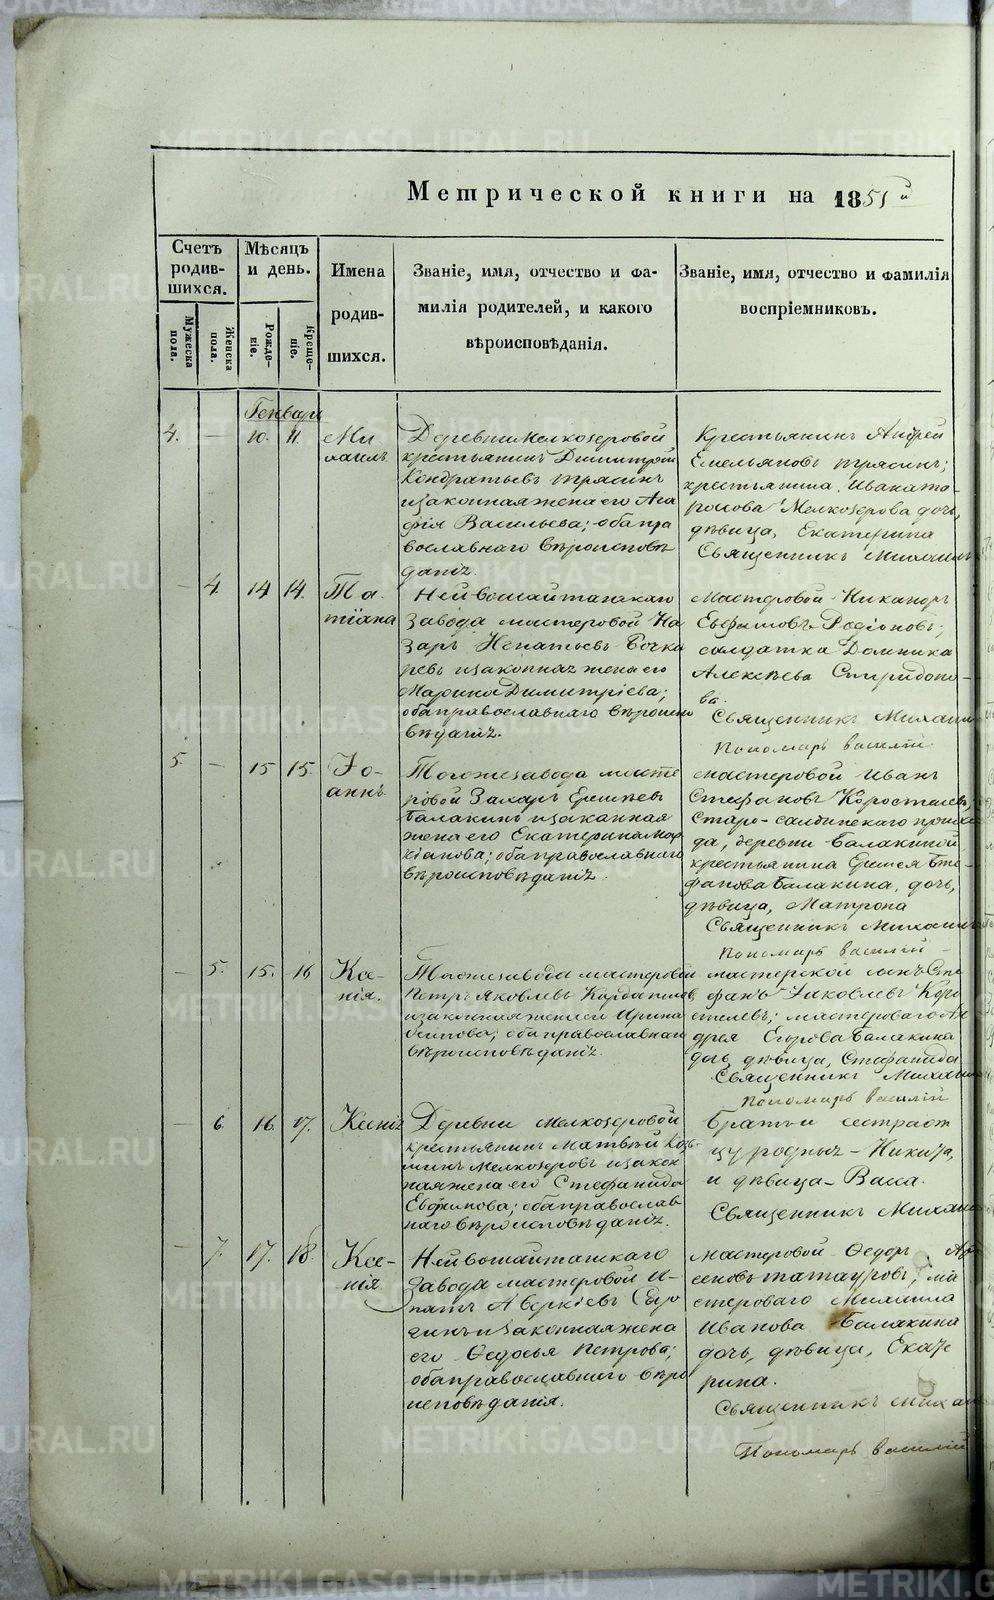 Метрической книги на 1851й
Счетъ родив-шихся.
Мужеска пола.
Женска пола.
Мѣсяцъ и день.
Рожде-ніе.
Креще-ніе.
Имена
родив-
шихся.
Званіе, имя, отчество и фа-
милія родителей, и какого
вѣроисповѣданія.
Званіе, имя, отчество и фамилія
воспріемниковъ.
Генварь
4. — 10. 11. Ми
хаилъ
Деревни Мелкозеровой
крестьянинъ Димитрій
Кондратьевъ Трясинъ
и законная жена его Ага
фія Васильева; оба пра
вославнаго вѣроисповѣ
данія.
Крестьянинъ Андрей
Емельяновъ Трясинъ;
крестьянина Ивана
Мелкозерова дочь,
дѣвица, Екатерина
Священникъ Михаилъ
— 4. 14 14. Та
тіана
Нейвошайтанскаго
завода мастеровой На
заръ Игнатьевъ Бочка
ревъ и законная жена его
Марина Димитріева;
оба православнаго вѣроиспо
вѣданія.
Мастеровой Никаноръ
Евфимовъ Родіоновъ;
солдатка Домника
Алексѣева Спиридоно-
ва.
Священникъ Михаилъ
Пономарь Василій
5. — 15 15. Іо-
аннъ
Тогоже завода масте
ровой Захаръ Еремѣевъ
Балакинъ и законная
жена его Екатерина Мар
кіанова; оба православнаго
вѣроисповѣданія.
мастеровой Иванъ
Стефановъ Коростелевъ,
Старо-салдинскаго прихо
да, деревни Балакиной
крестьянина Еремея Сте
фанова Балакина, дочь,
дѣвица, Матрона
Священникъ Михаилъ
Пономарь Василій
— 5. 15. 16 Ксе-
нія.
Тогоже завода мастеровой
Петръ Яковлевъ
и законная жена его Ирина
Осипова; оба православнаго
вѣроисповѣданія.
мастерской сынъ Сте
фанъ Яковлевъ Коро
стелевъ; мастероваго Ан
дрея Егорова Балакина
дочь, дѣвица, Стефанида
Священникъ Михаилъ
Пономарь Василій
— 6. 16. 17. Ксенія
Деревни Мелкозеровой
крестьянинъ Матвѣй Козь-
минъ Мелкозеровъ и закон
ная жена его Стефанида
Евфимова; оба православ
наго вѣроисповѣданія.
Братъ и сестра от
цу родныя — Никита,
и дѣвица — Васса.
Священникъ Михаилъ
— 7. 17. 18. Ксе-
нія
Нейвошайтанскаго
завода мастеровой И-
патъ Аверкіевъ
и законная жена
его Ѳедосья Петрова;
оба православнаго вѣро
исповѣданія.
мастеровой Ѳедоръ Ар
сеновъ Татауровъ; ма
стероваго Михаила
Иванова Балакина
дочь, дѣвица, Екате
рина.
Священникъ Михаилъ
Пономарь Василій
METRIKI.GASO-URAL.RU